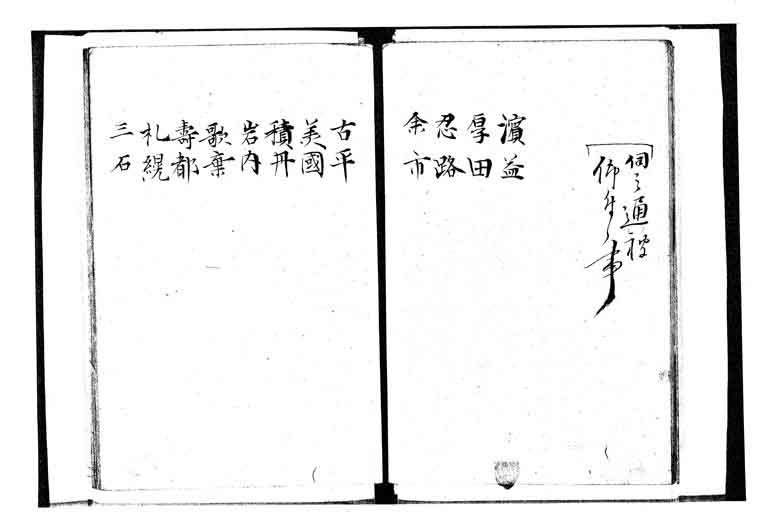 伺之通被
仰付候事
濵益
厚田
忍路
余市
古平
美國
積丹
岩内
歌棄
壽都
札幌
三石